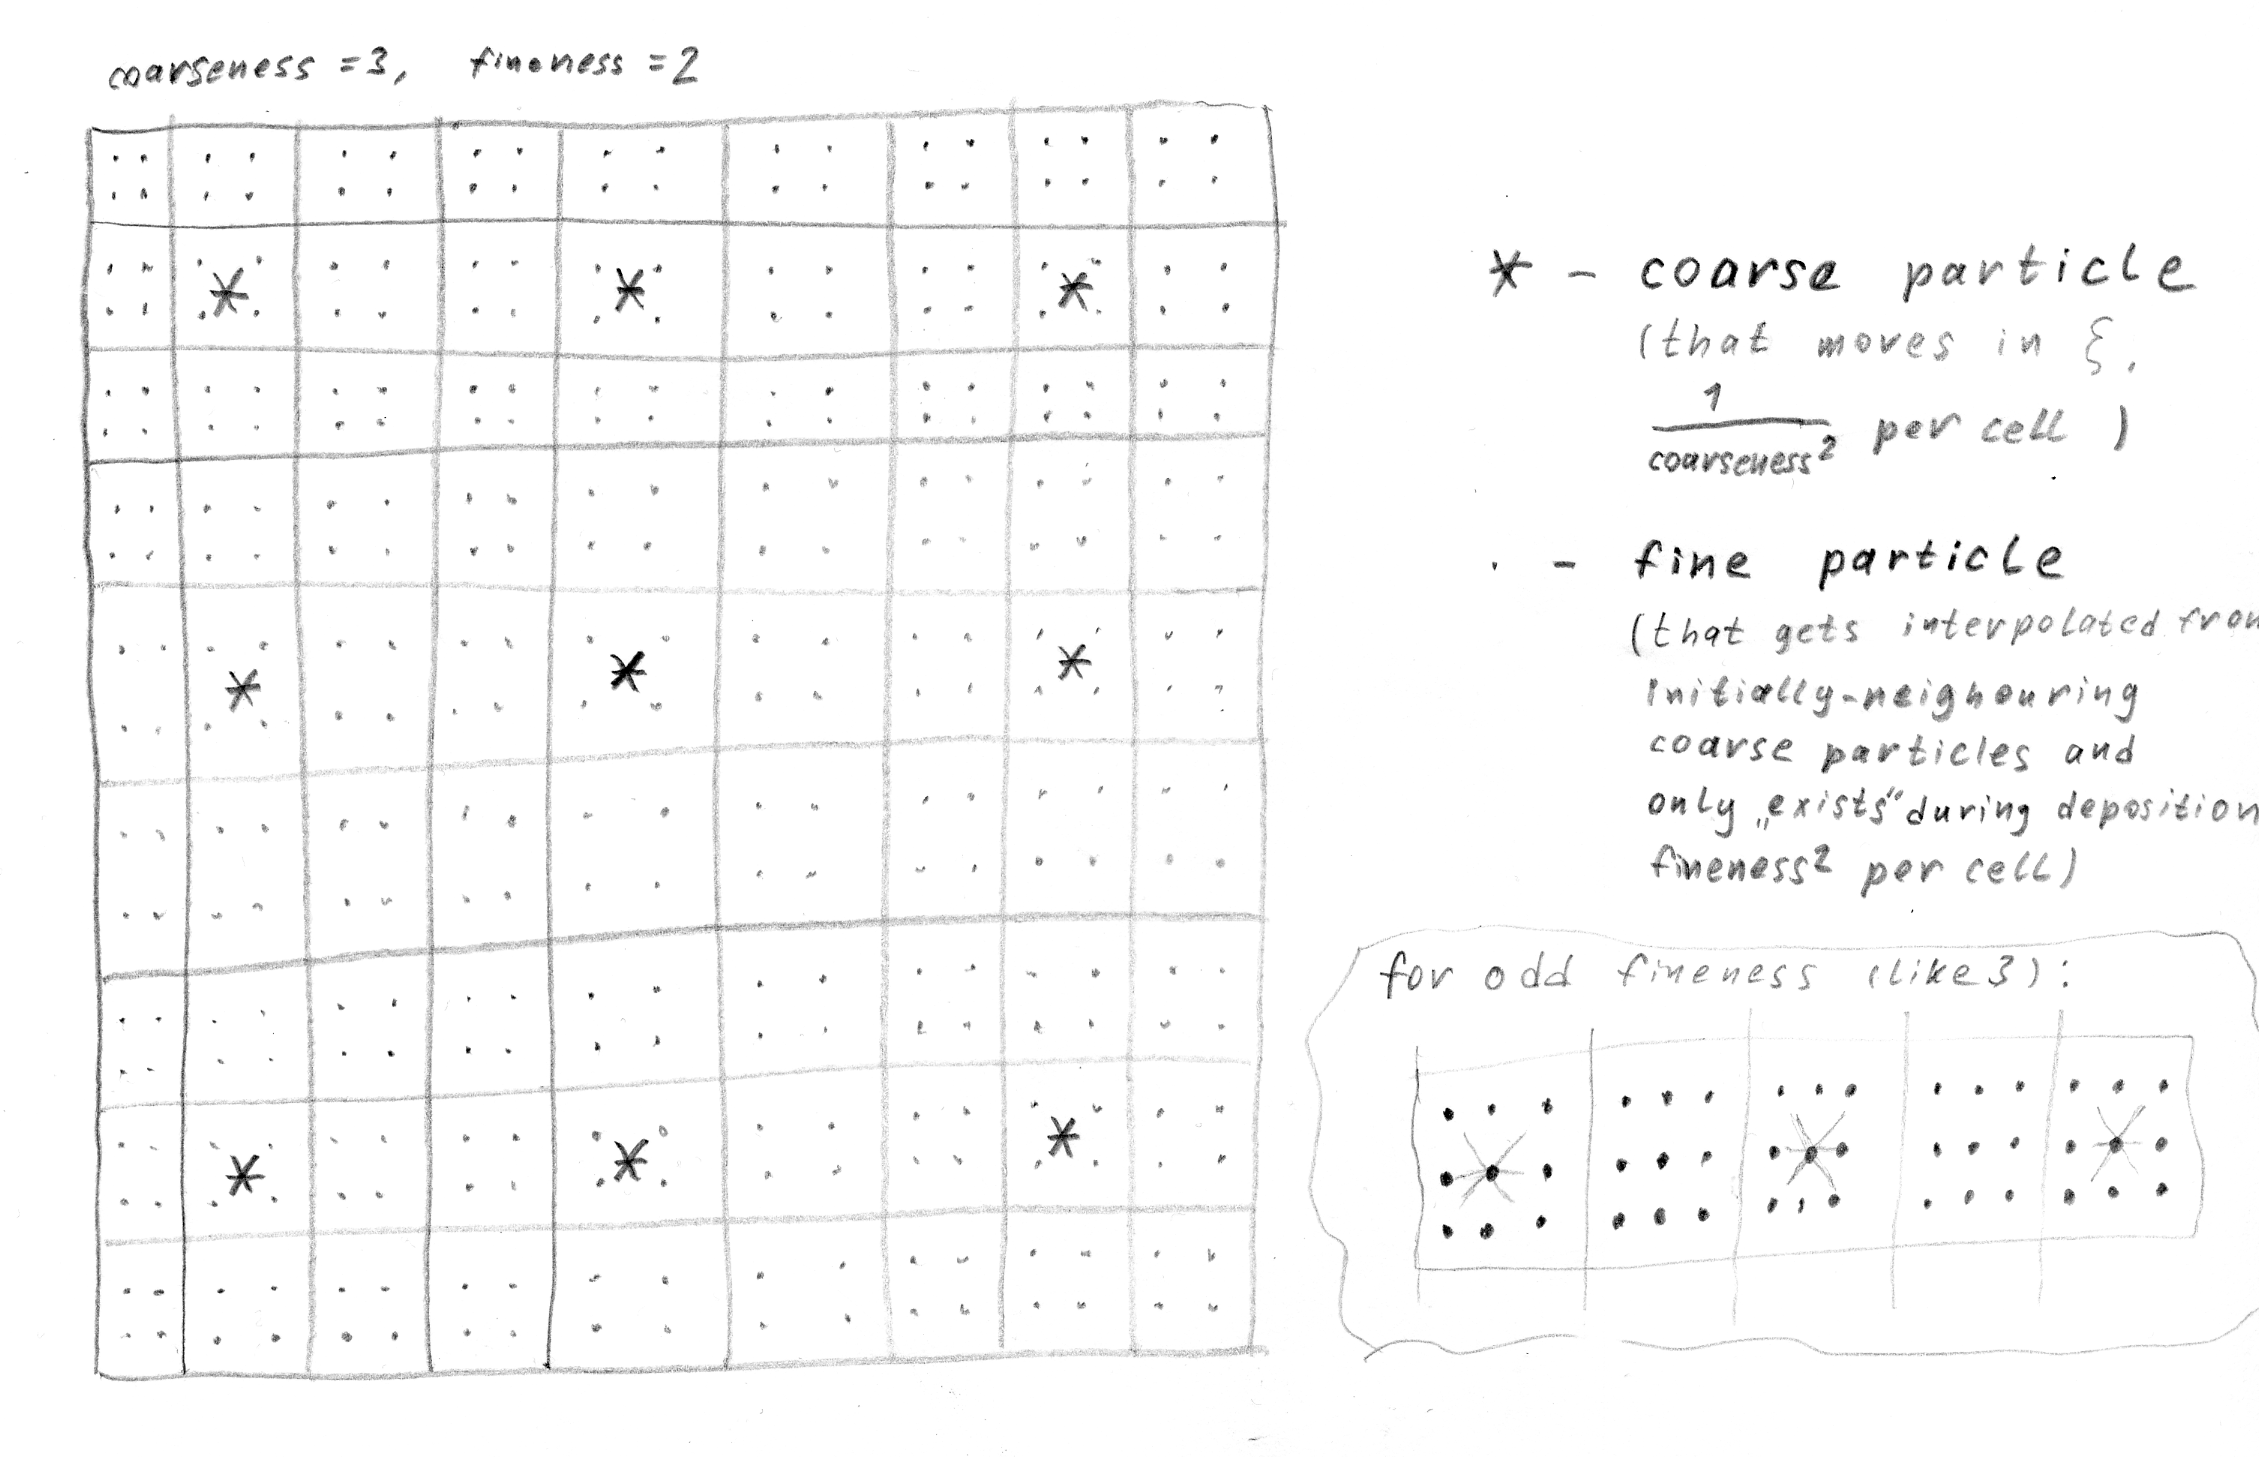 coarseness =3, fineness =2
* - coarse particle
(that moves in ξ,
1
coarseness² per cell )
· - fine particle
(that gets interpolated from
Initially-neighouring
coarse particles and
only „exists“ during deposition
fineness² per cell)
for odd fineness (like 3):